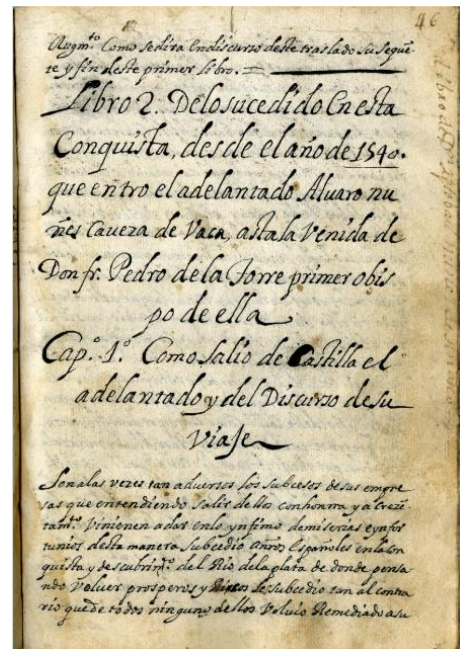 46
Augmto. Como se dira En discurso deste traslado su seqüe
te y fin deste primer libro.
Libro 2. Delo sucedido En esta
Conquista, desde el año de 1540.
que entro el adelantado Alvaro nu
ñes Caveza de Vaca, asta la Venida de
Don fr. Pedro de la Torre primer obis
po de ella
Cap.º 1.º Como salio de Castilla el
adelantado y del Discurso de su
Viaje
Son alas vezes tan adversos los subcesos de sus empre
sas que entendiendo salir dellos con honrra y acreze
tamto. Vinienen a dar en lo ynfimo de miserias e ynfor
tunios desta manera subcedio a nros Españoles en la con
quista y descubrimto. del Rio de la plata de donde pensa
ndo Volver prosperos y Ricos les subcedio tan al contra
rio que de todos ninguno dellos Volvio Remediado a su